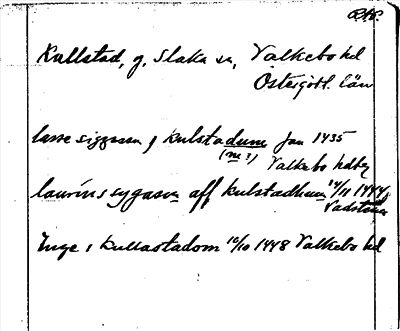 Kullstad, g. Slaka sn, Valkebo hd
Östergötl. län
lasse siggessa j kulstadum Jan 1435
(ne?) Valkebo hdbr
laurins sygasua aff kulstadhum 14/11 1444,
Vadstena
Inge i Kullastadom 10/10 1448 Valkebo hd